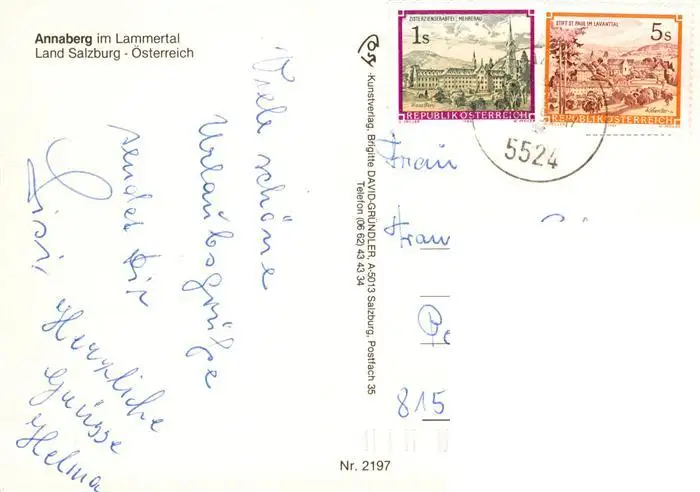 Annaberg im Lammertal
Land Salzburg - Österreich
Viele schöne
Urlaubsgrüße
sendet Dir
Sisi
Herzliche
Grüsse
Helma
-Kunstverlag, Brigitte DAVID-GRÜNDLER, A-5013 Salzburg, Postfach 35
Telefon (06 62) 43 43 34
Nr. 2197
ZISTERZIENSERABTEI MEHRERAU
1s
REPUBLIK ÖSTERREICH
STIFT ST. PAUL IM LAVANTTAL
5s
REPUBLIK ÖSTERREICH
5524
Frau
Fraw
Be
815